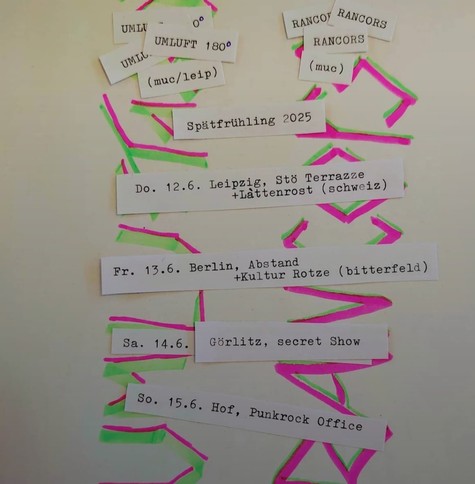 UML 0°
RANCOR
RANCORS
UMLUFT 180°
RANCORS
UMLU
(muc/leip)
(muc)
Spätfrühling 2025
Do. 12.6. Leipzig, Stö Terrazze
+Lättenrost (schweiz)
Fr. 13.6. Berlin, Abstand
+Kultur Rotze (bitterfeld)
Sa. 14.6. Görlitz, secret Show
So. 15.6. Hof, Punkrock Office